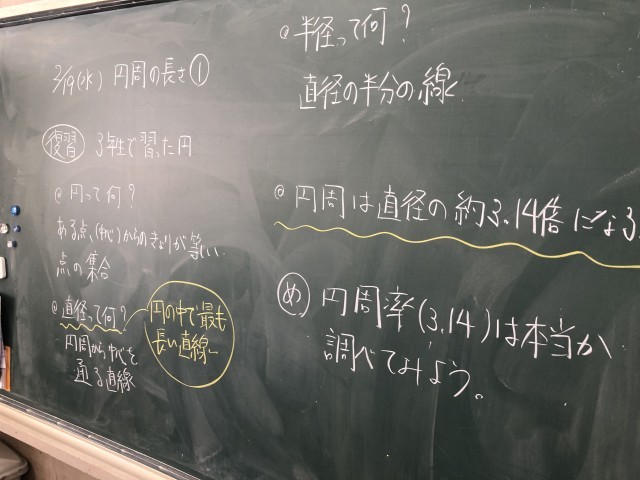 2/19(水) 円周の長さ①
復習 3年生で習った円
@ 円って何?
ある点、(中心)からのきょりが等しい
点の集合
@ 直径って何?
円周から中心を
通る直線
円の中で最も
長い直線
@ 半径って何?
直径の半分の線
@ 円周は直径の約3.14倍になる.
め 円周率(3.14)は本当か
調べてみよう。